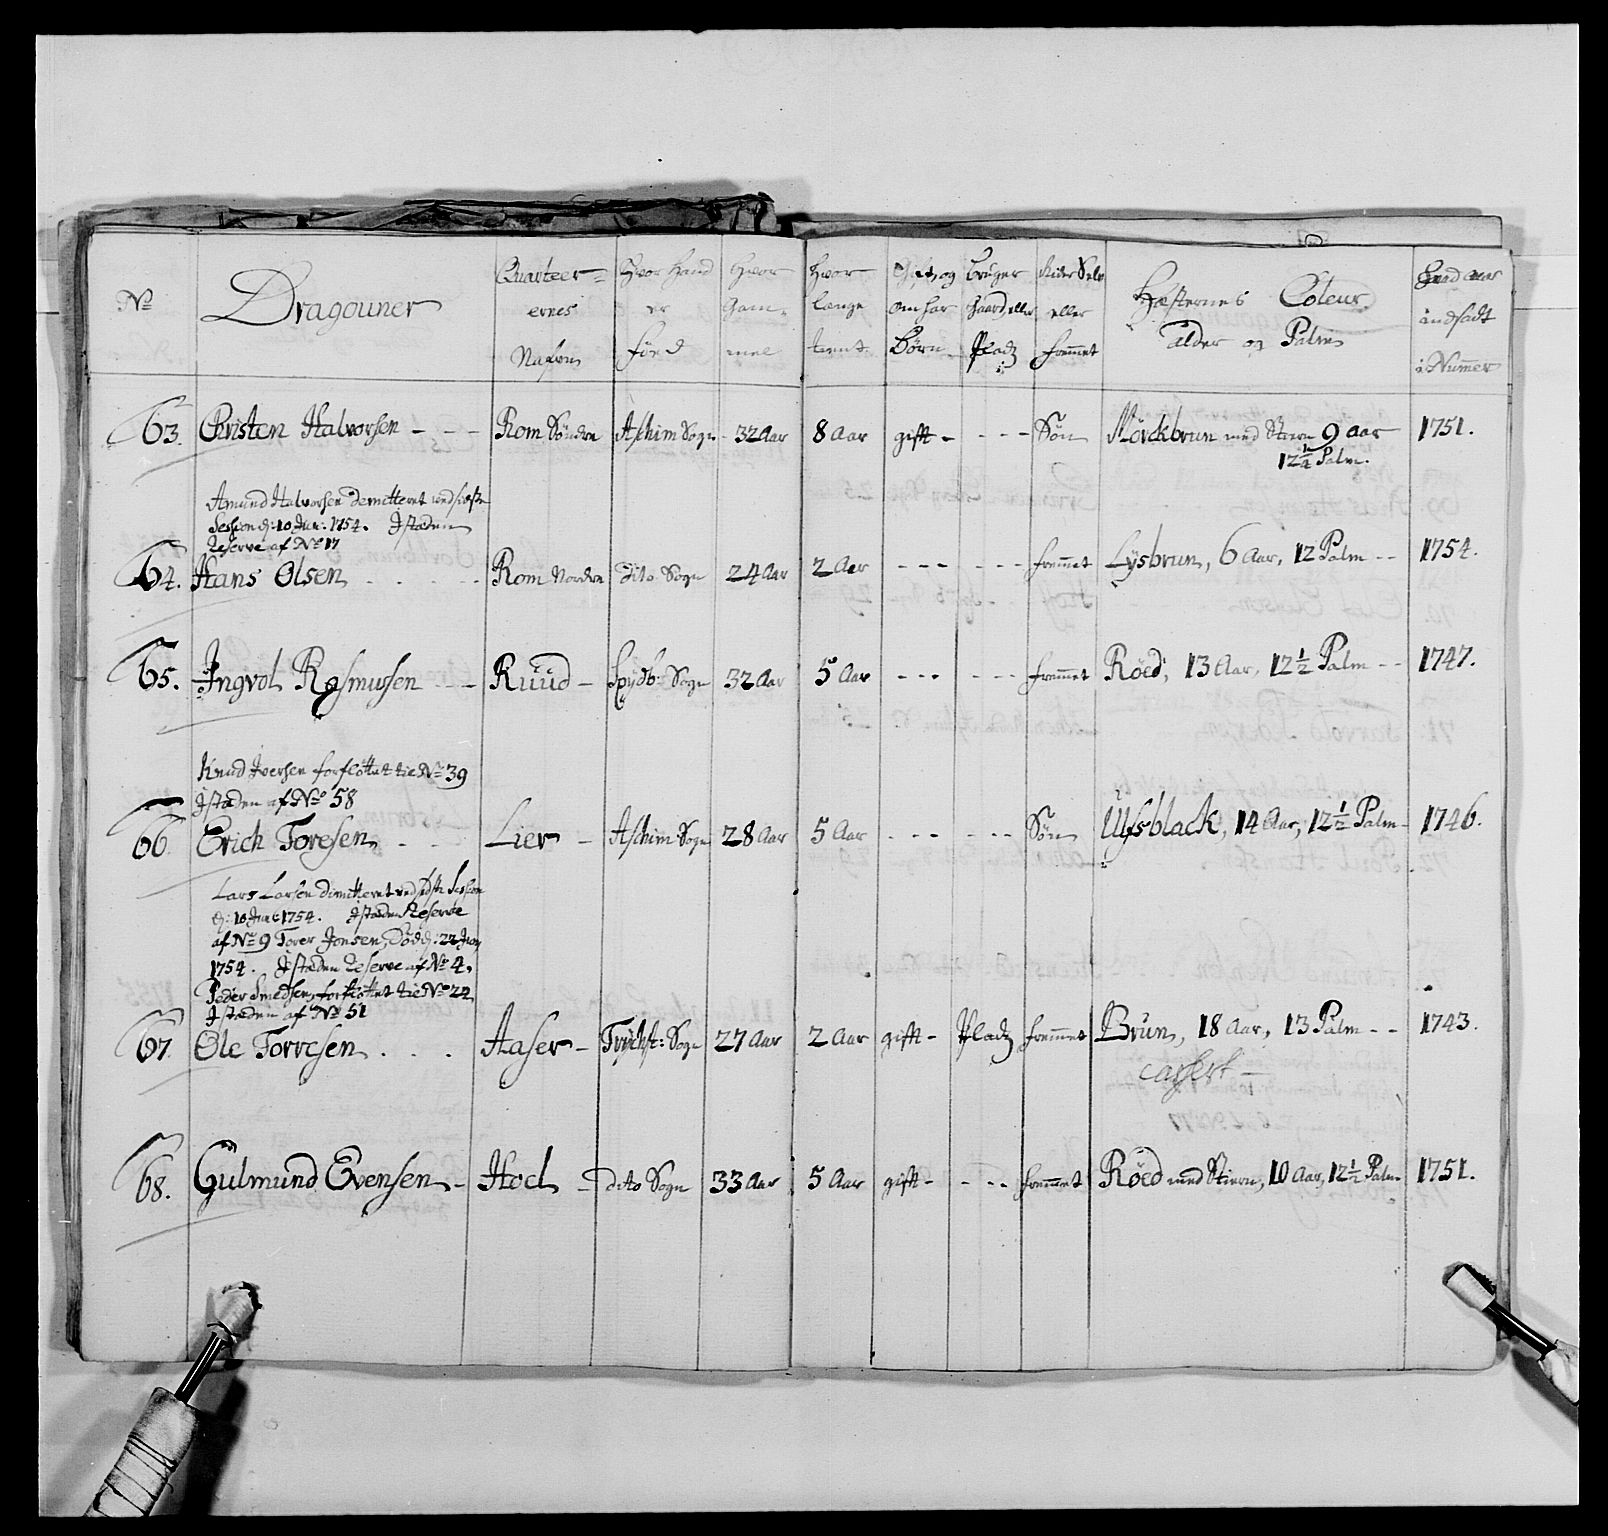 No Dragouner Quarteer= ernes Nafn Hvor Hand er föed Hvor Gam= mel Hvor lange tient Gift, og om har Börn Bruger Gaard eller Pladz Rider Selv eller fremmet Hæsternes Coleur alder og Palm Hvad aar indsadt i Numer
63. Christen Halvorsen - - - Rom Söndre Aschim Sogn - 32 Aar 8 Aar gifft - - - - Sön Mörckbrun med Stiern 9 aar 1751.
12 1/4 Palm.
Amund Halvorsen demitteret ved sidste
Session d: 10 Jun: 1754. I staden
Reserve af No 17
64. Hans Olsen - - - Rom Nordre dito Sogn 24 Aar 2 Aar - - - - - - fremmet Lysbrun, 6 Aar, 12 Palm - - 1754.
65. Ingvol Rasmusen - - - Ruud - Spydb: Sogn 32 Aar 5 Aar - - - - - - fremmet Röed, 13 Aar, 12 1/2 Palm - - 1747.
Knud Iversen forflöttet til No 39
I staden af No 58
66. Erich Toresen - - Lier - Aschim Sogn 28 Aar 5 Aar - - - - - - Sön Ulfsblack, 14 Aar, 12 1/2 Palm - 1746.
Lars Larsen dimitteret ved sidste Session
d: 10 Jun 1754. I staden Reserve
af No 9 Tover Jonsen, Död d: 22
1754. I staden Reserve af No 4.
Peder Smedsen, forflöttet til No 24
I staden af No 51
67. Ole Torresen . . . Aaser - Trychst: Sogn 27 Aar 2 Aar gifft - Pladz fremmet Brun, 18 Aar, 13 Palm - - 1743.
Cassert
68. Gulmund Evensen - Hoel - dito Sogn 33 Aar 5 Aar gifft - - - - fremmet Röed med Stiern, 10 Aar, 12 1/2 Palm 1751.